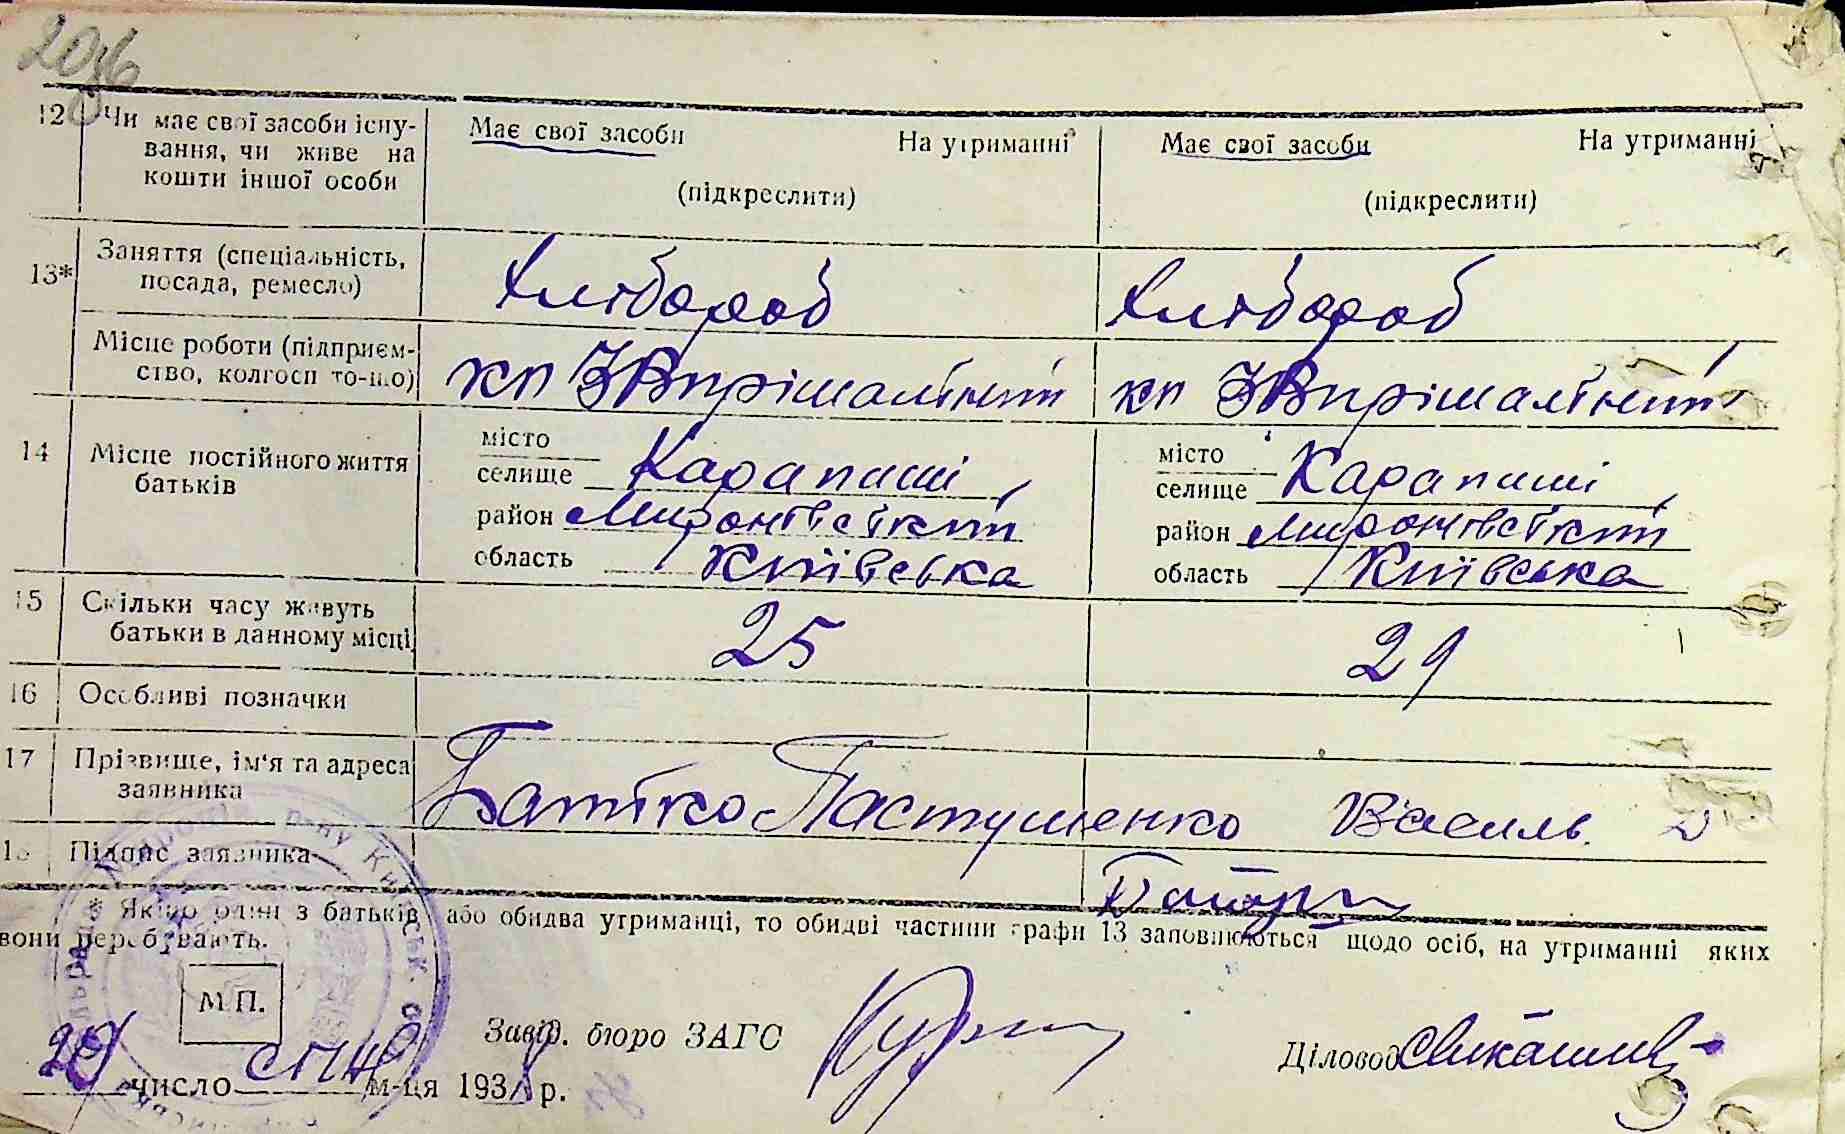 12 Чи має свої засоби існу-
вання, чи живе на
кошти іншої особи
Має свої засоби На утриманні
(підкреслити)
Має свої засоби На утриманні
(підкреслити)
13* Заняття (спеціальність,
посада, ремесло)
Хлібороб
Хлібороб
Місце роботи (підприєм-
ство, колгосп то-що)
кп
кп
14 Місце постійного життя
батьків
місто
селище Карапиші
район Миронівський
область Київська
місто
селище Карапиші
район Миронівський
область Київська
15 Скільки часу живуть
батьки в данному місці
25
29
16 Особливі позначки
17 Прізвище, ім'я та адреса
заявника
Батько Пастушенко Василь
Підпис заявника
* Якщо один з батьків або обидва утриманці, то обидві частини графи 13 заповнюються щодо осіб, на утриманні яких
вони перебувають.
М.П.
Завід. бюро ЗАГС
Діловод
число м-ця 193 р.